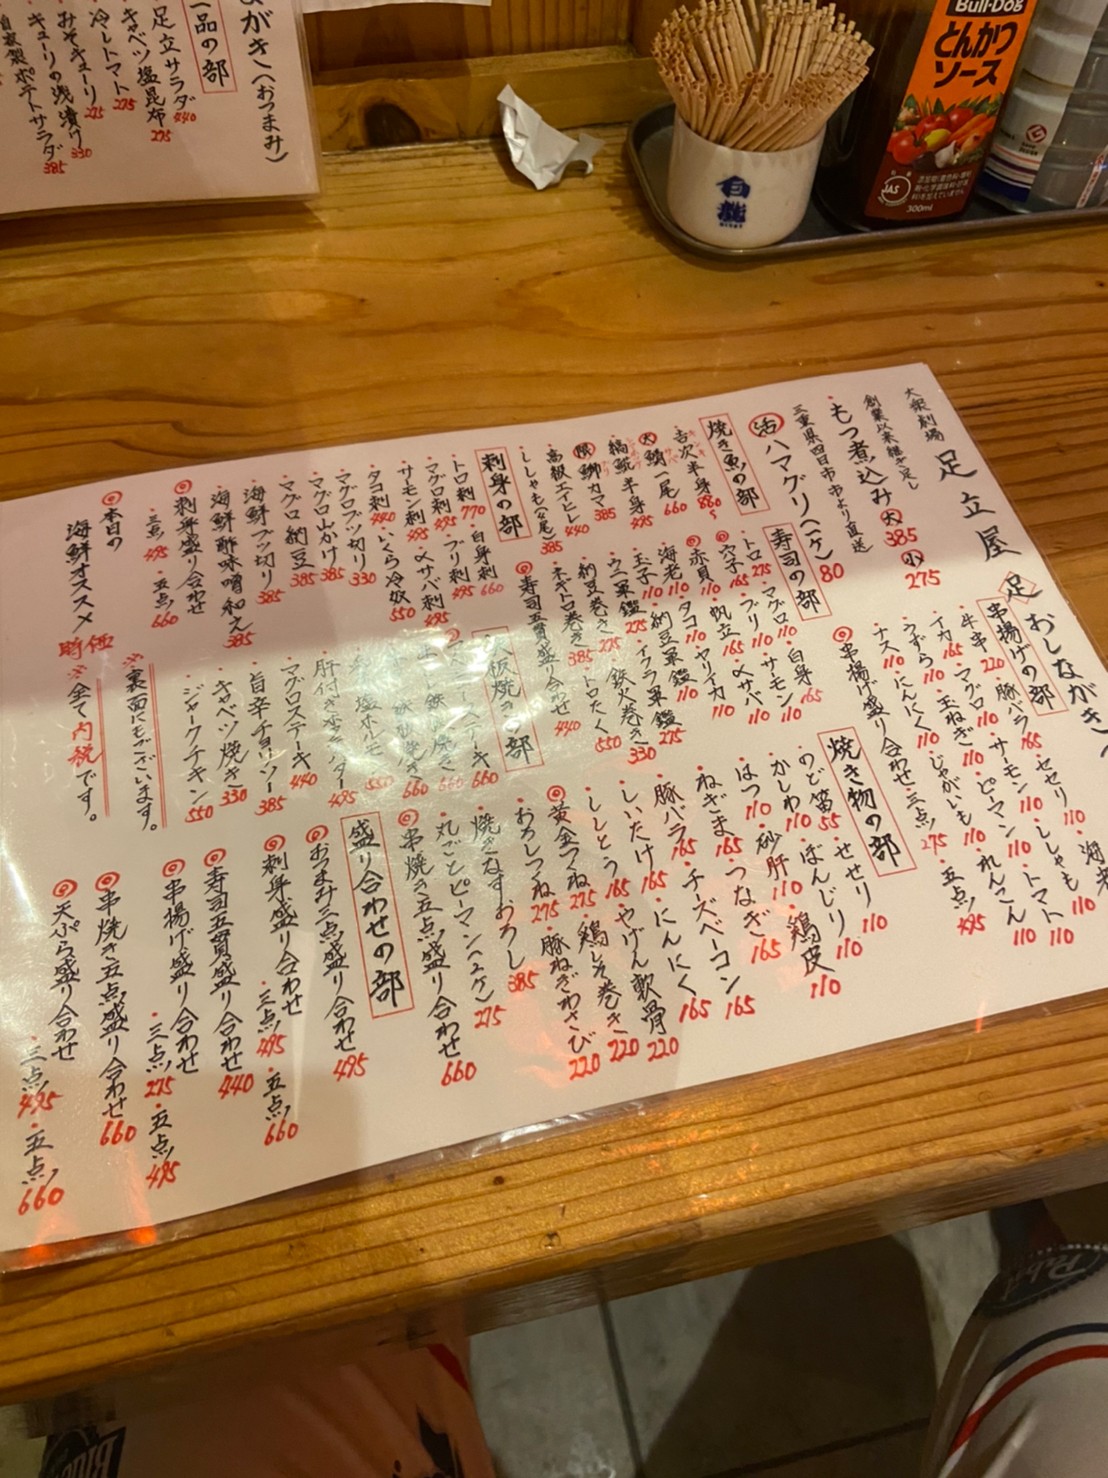 大衆劇場 足立屋
足 おしながき
創業以来継ぎ足し
・もつ煮込み 大 385 小 275
三重県四日市市より直送
活 ハマグリ(一ヶ) 80
串揚げの部
・牛串 220 ・豚バラ 165 ・セセリ 110 ・海老
・イカ 165 ・マグロ 110 ・サーモン 110 ・ししゃも 110
・うずら 110 ・玉ねぎ 110 ・ピーマン 110 ・トマト 110
・ナス 110 ・にんにく 110 ・じゃがいも 110 ・れんこん 110
◎串揚げ盛り合わせ ・三点 275 ・五点 495
焼き魚の部
・吉次半身 880
大 鯖一尾 660
・縞鯱半身 495
限 鰤カマ 385
・高級エイヒレ 440
・ししゃも(4尾) 385
寿司の部
・トロ 275 ・マグロ 110 ・白身 165
◎穴子 165 ・ブリ 110 ・サーモン 110
◎赤貝 110 ・帆立 165 ・〆サバ 110
・海老 110 ・タコ 110 ・ヤリイカ 110
・玉子 110 ・納豆軍艦 110
・ウニ軍艦 275 ・イクラ軍艦 275
・納豆巻き 275 ・鉄火巻き 330
・ネギトロ巻き 385 ・トロたく 550
◎寿司五貫盛り合わせ 440
焼き物の部
・のど笛 55 ・せせり 110
・かしわ 110 ・ぼんじり 110
・はつ 110 ・砂肝 110 ・鶏皮 110
・ねぎま 165 ・つなぎ 165
・豚バラ 165 ・チーズベーコン 165
・しいたけ 165 ・にんにく 165
・ししとう 165 ・やげん軟骨 220
◎黄金つくね 275 ・鶏しそ巻き 220
・おろしつくね 275 ・豚ねぎわさび 220
・焼きなすおろし 385
・丸ごとピーマン(2ヶ) 275
◎串焼き五点盛り合わせ 660
刺身の部
・トロ刺 770 ・白身刺 660
・マグロ刺 495 ・ブリ刺 495
・サーモン刺 495 ・〆サバ刺 495
・タコ刺 440 ・いくら冷奴 550
・マグロブツ切り 330
・マグロ山かけ 385
・マグロ納豆 385
・海鮮ブツ切り 385
・海鮮酢味噌和え 385
◎刺身盛り合わせ
・三点 495 ・五点 660
◎本日の
海鮮オススメ 時価
板焼きの部
ステーキ 660
鉄 焼き 660
660
塩ホルモン 550
・肝付き バター 495
・マグロステーキ 440
・旨辛チョリソー 385
・キャベツ焼き 330
・ジャークチキン 550
※裏面にもございます。
※全て内税です。
盛り合わせの部
◎おつまみ三点盛り合わせ 495
◎刺身盛り合わせ ・三点 495 ・五点 660
◎寿司五貫盛り合わせ 440
◎串揚げ盛り合わせ ・三点 275 ・五点 495
◎串焼き五点盛り合わせ 660
◎天ぷら盛り合わせ ・三点 495 ・五点 660
ながき(おつまみ)
一品の部
足立サラダ 440
キャベツ塩昆布 275
冷しトマト 275
みそキューリ 275
キューリの浅漬け 330
自家製ポテトサラダ 385
白龍
Bull-Dog
とんかつ
ソース
JAS
300ml